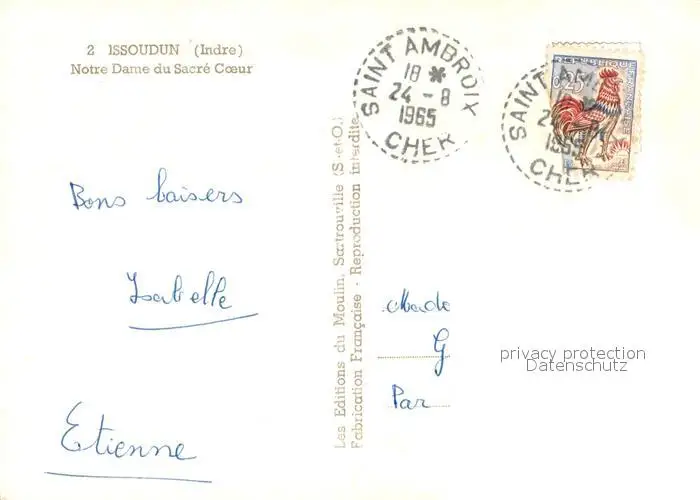 2 ISSOUDUN (Indre)
Notre Dame du Sacré Cœur
Bons baisers
Isabelle
Etienne
Les Editions du Moulin, Sartrouville (S.-et-O.)
Fabrication Française - Reproduction Interdite
SAINT AMBROIX
18 *
24 - 8
1965
CHER
SAINT AM
24
1965
CHER
0,25
Made
G
Par
privacy protection
Datenschutz